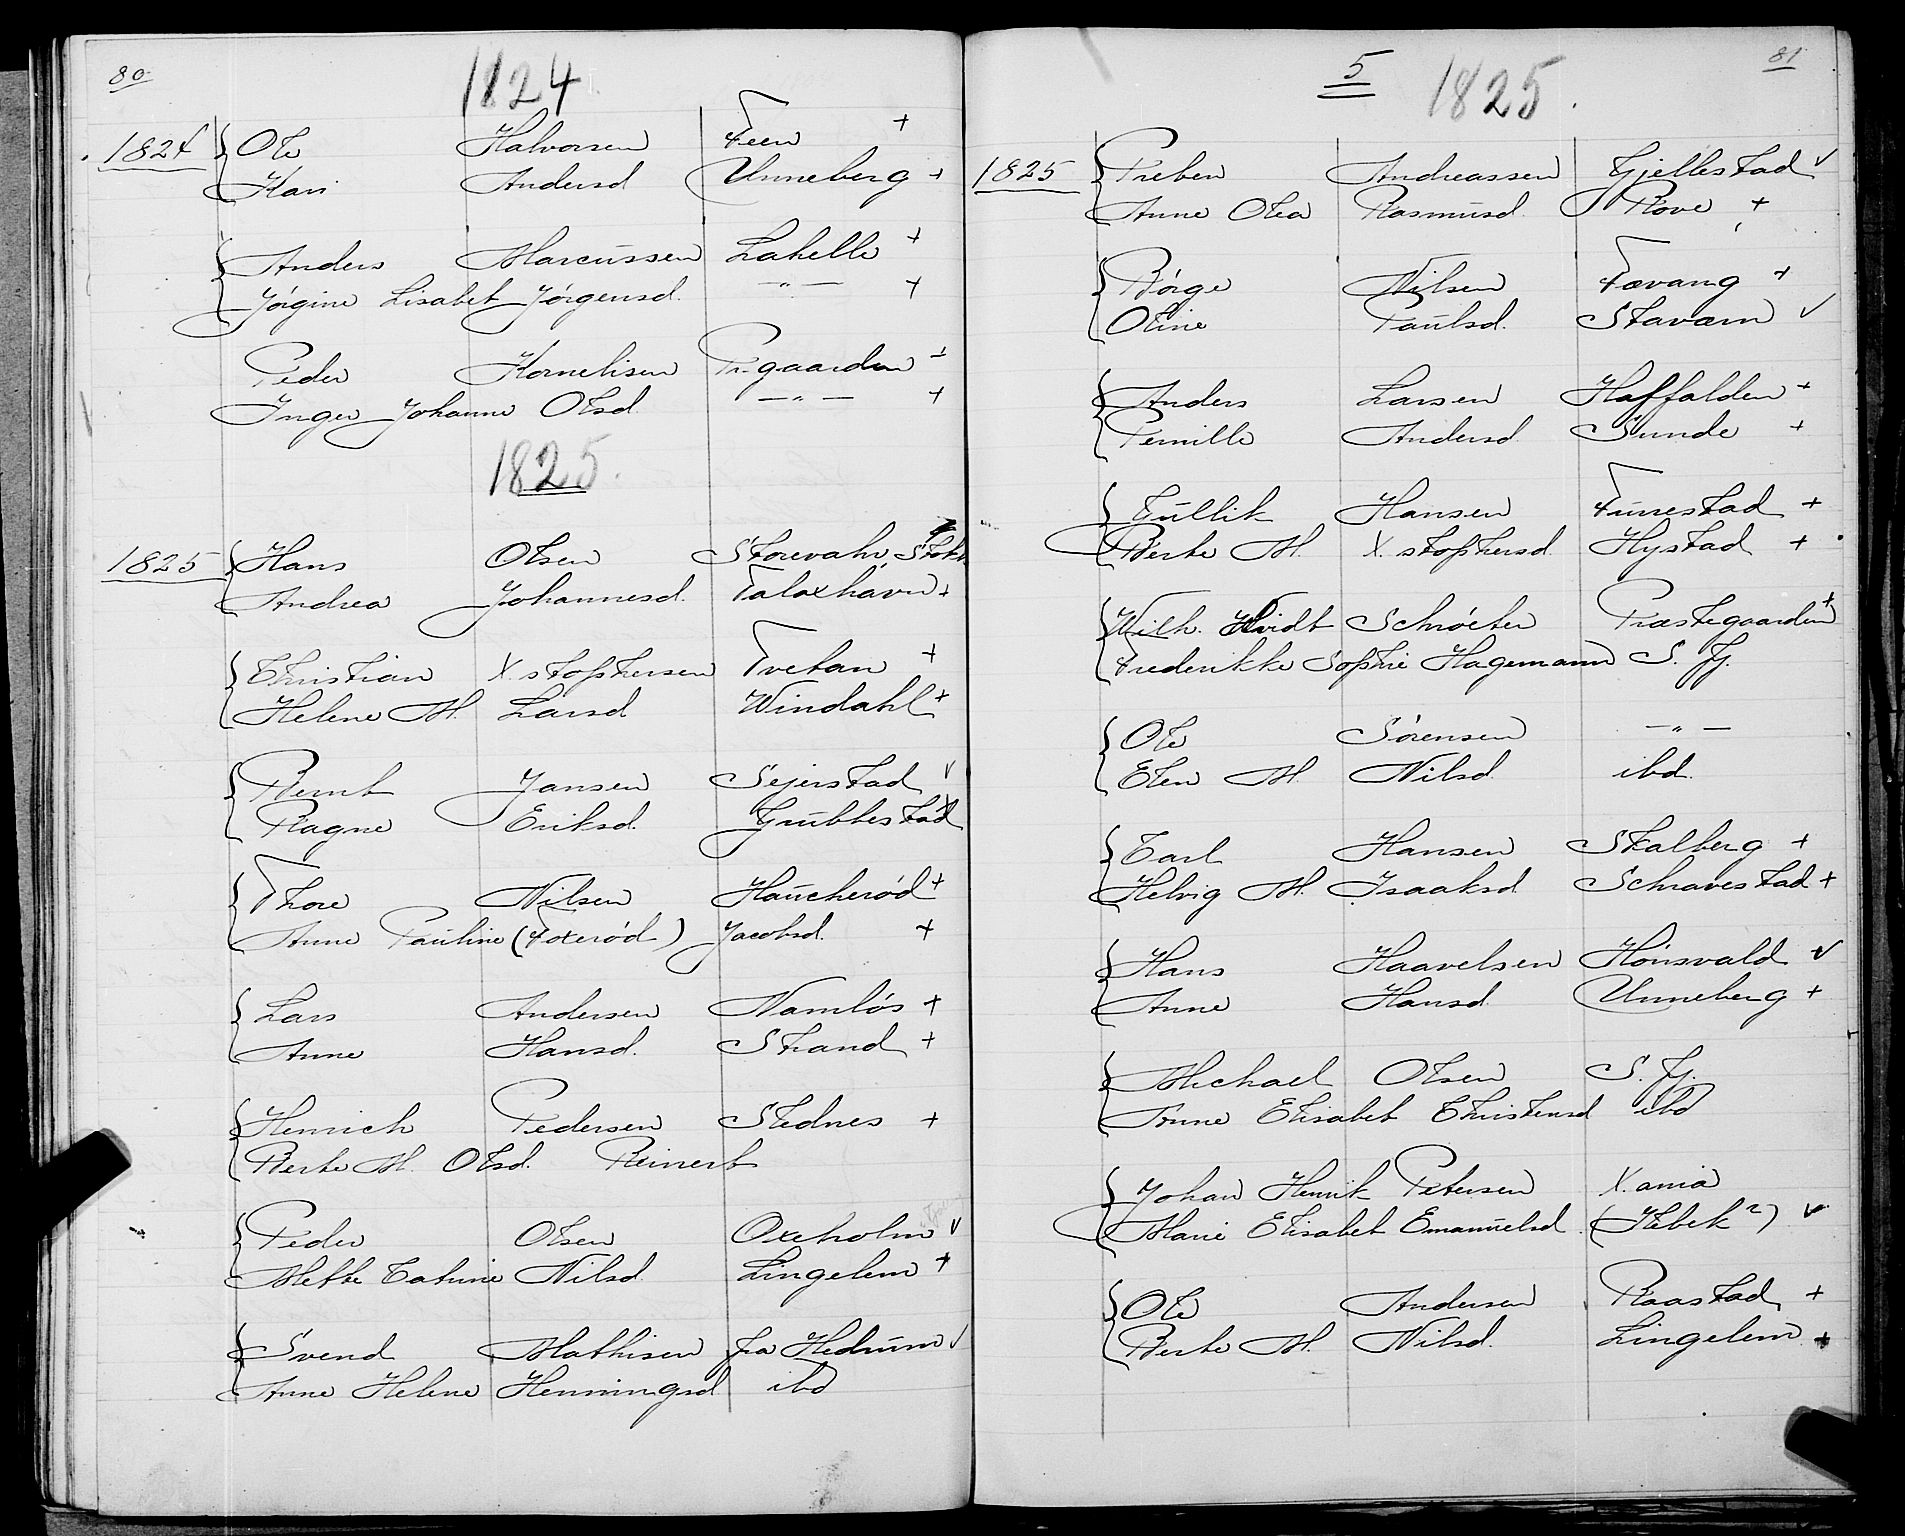 80
1824
1824 Ole Halvorsen Feen +
Kari Andersd Unneberg +
Anders Marcussen Lahelle +
Jørgine Lisabet Jørgensd. —„— +
Peder Kornelisen Pr.gaarden +
Inger Johanne Olsd —„— +
1825.
1825 Hans Olsen Storevahr, Stokk
Andrea Johannesd. Faloxhavn +
Christian X.stophersen Tvetan +
Helene M. Larsd Windahl +
Bernt Jansen Sejerstad v
Ragne Eriksd. Grubbestad
Thore Nilsen Haucherød +
Anne Pauline (Foxerød) Jacobsd. +
Lars Andersen Namløs +
Anne Hansd. Strand +
Henrich Pedersen Stednes +
Berte M. Olsd. Reinert
Peder Olsen Oxeholm v
Mette Catrine Nilsd. Lingelem +
Svend Mathisen fra Hedrum v
Anne Helene Henningsd ibd
81
5 1825.
1825 Preben Andreassen Gjellestad v
Anne Olea Rasmusd. Rove +
Børge Nilsen Fævang +
Oline Paulsd. Staværn v
Anders Larsen Haffalden +
Pernille Andersd Sunde +
Gullik Hansen Furestad +
Berte M. X.stophersd. Hystad +
Wilh. Hvidt Schrøeter Præstegaarden +
Frederikke Sophie Hagemann S. Fj.
Ole Sørensen —„—
Elen M. Nilsd. ibd.
Carl Hansen Skalberg +
Helvig M. Isaaksd Schravestad +
Hans Haavelsen Hönsvald v
Anne Hansd. Unneberg +
Michael Olsen S. Fj.
Anne Elisabet Christensd ibd
Johan Henrik Petersen X.ania
Marie Elisabet Emanuelsd. (Kebek?) v
Ole Andersen Raastad +
Berte M. Nilsd. Lingelem +